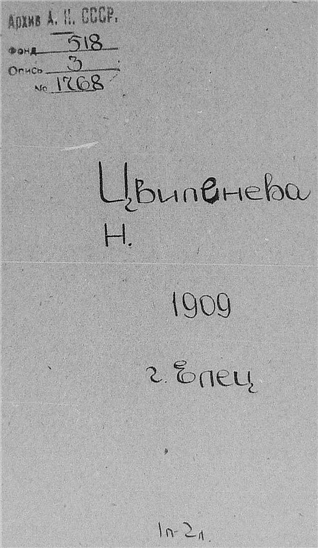 Архив А. Н. СССР.
Фонд 518
Опись 3
№ 1768
Цвиленева
Н.
1909
г. Елец
1л-2л.